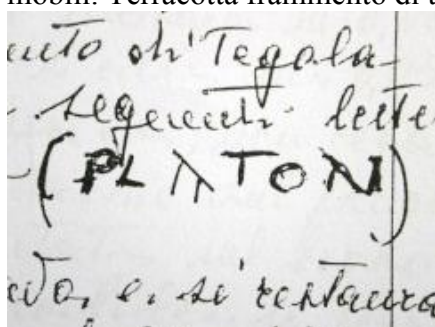 mobili. Terracotta frammento di t
di Tegola
seguenti lette
(PLATON)
e, si restaura